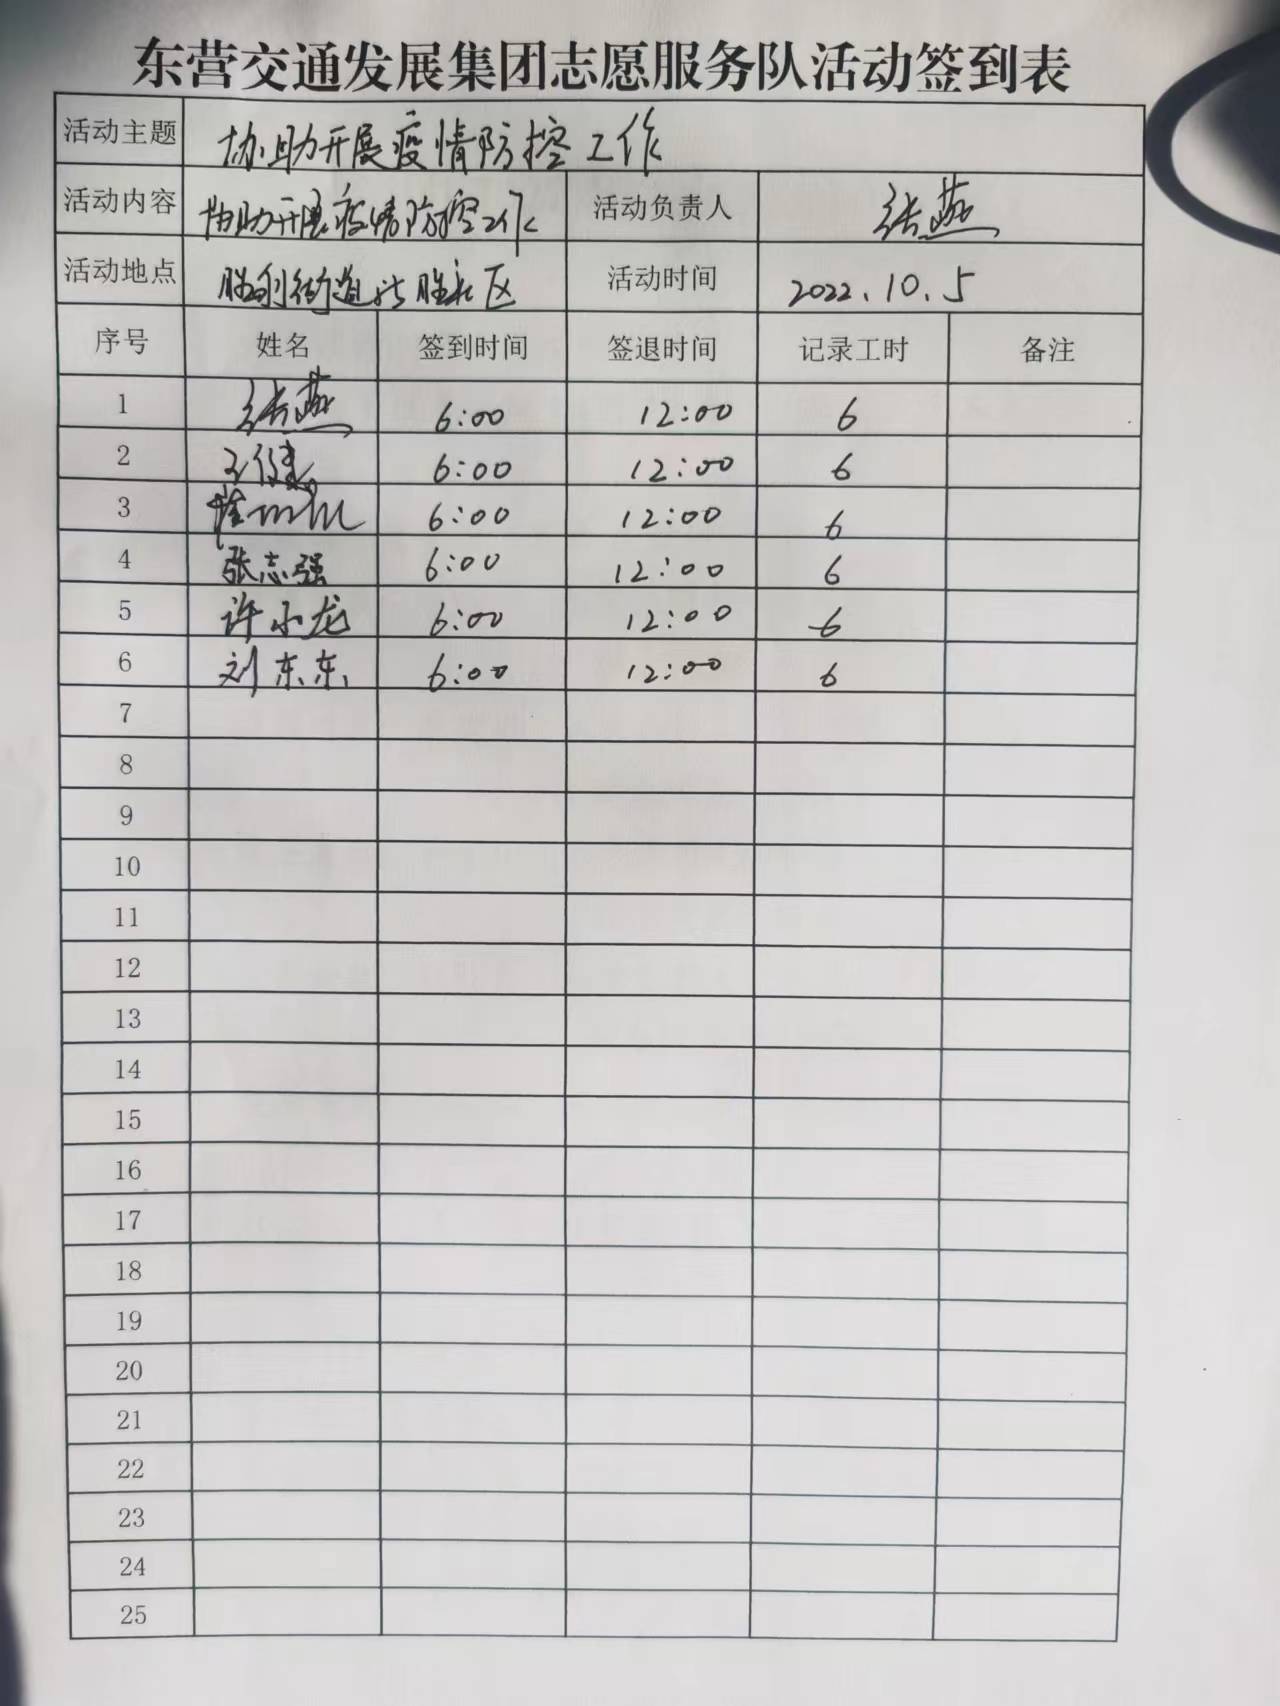 东营交通发展集团志愿服务队活动签到表
活动主题 协助开展疫情防控工作
活动内容 协助开展疫情防控工作 活动负责人 张燕
活动地点 胜利街道 胜社区 活动时间 2022.10.5
序号 姓名 签到时间 签退时间 记录工时 备注
1 张燕 6:00 12:00 6
2 王健 6:00 12:00 6
3 6:00 12:00 6
4 张志强 6:00 12:00 6
5 许小龙 6:00 12:00 6
6 刘东东 6:00 12:00 6
7
8
9
10
11
12
13
14
15
16
17
18
19
20
21
22
23
24
25